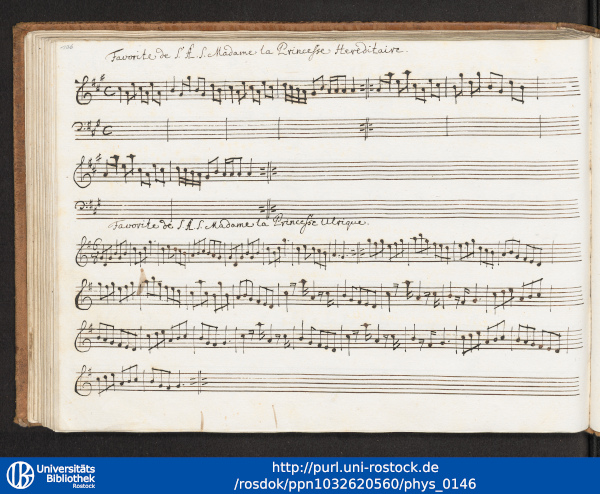 106
Favorite de S. A. S. Madame la Princesse Hereditaire.
Favorite de S. A. S. Madame la Princesse Ulrique.
Universitäts
Bibliothek
Rostock
http://purl.uni-rostock.de
/rosdok/ppn1032620560/phys_0146